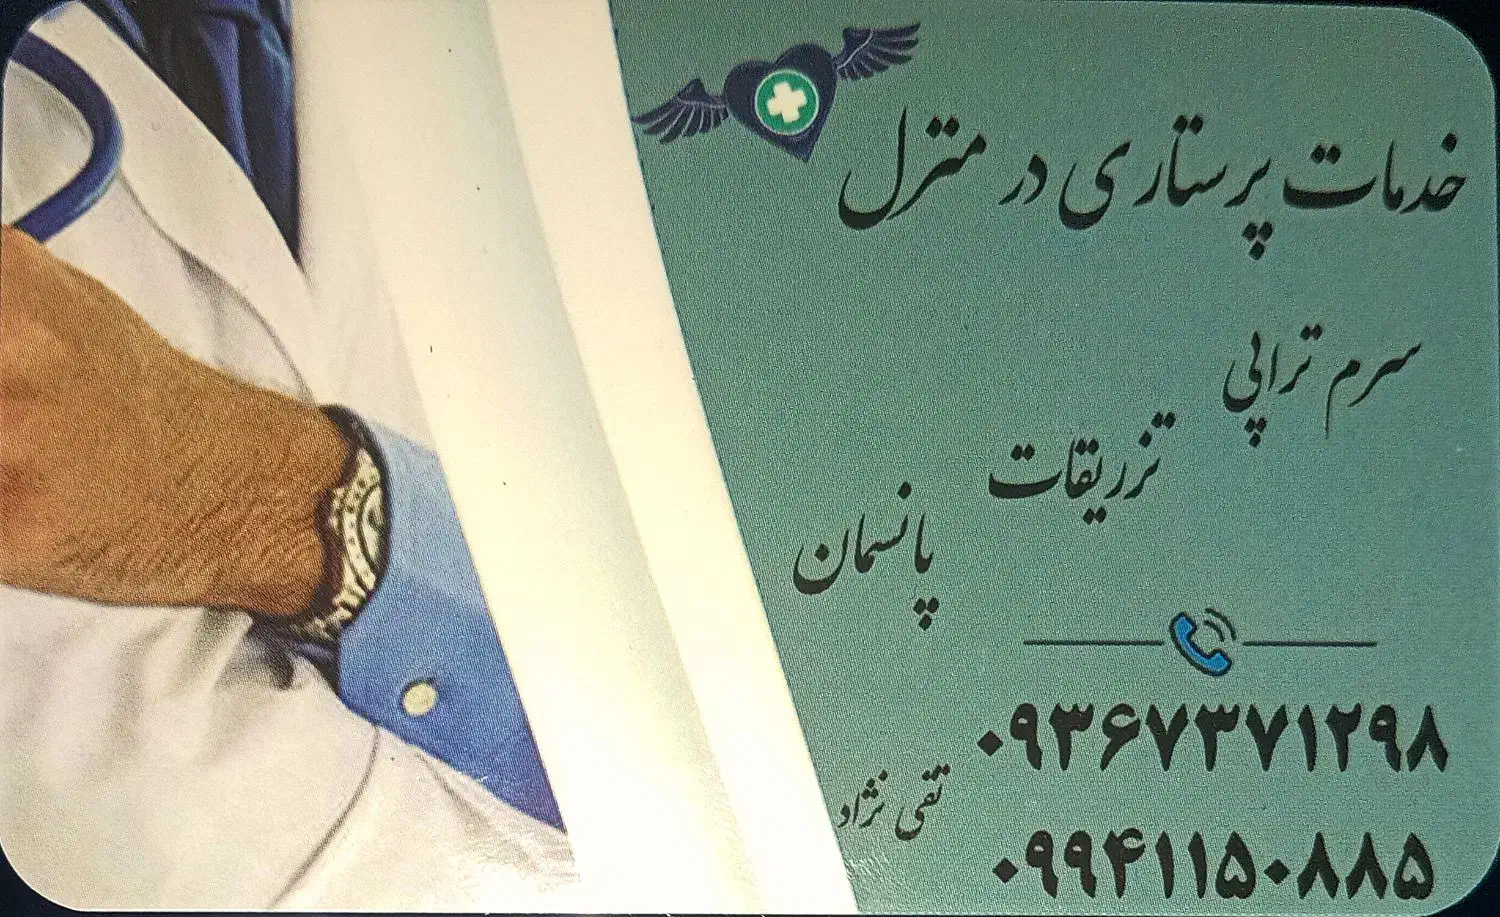 خدمات پرستاری در منزل
سرم تراپی
تزریقات
پانسمان
۰۹۳۶۷۳۷۱۲۹۸
تقی نژاد
۰۹۹۴۱۱۵۰۸۸۵